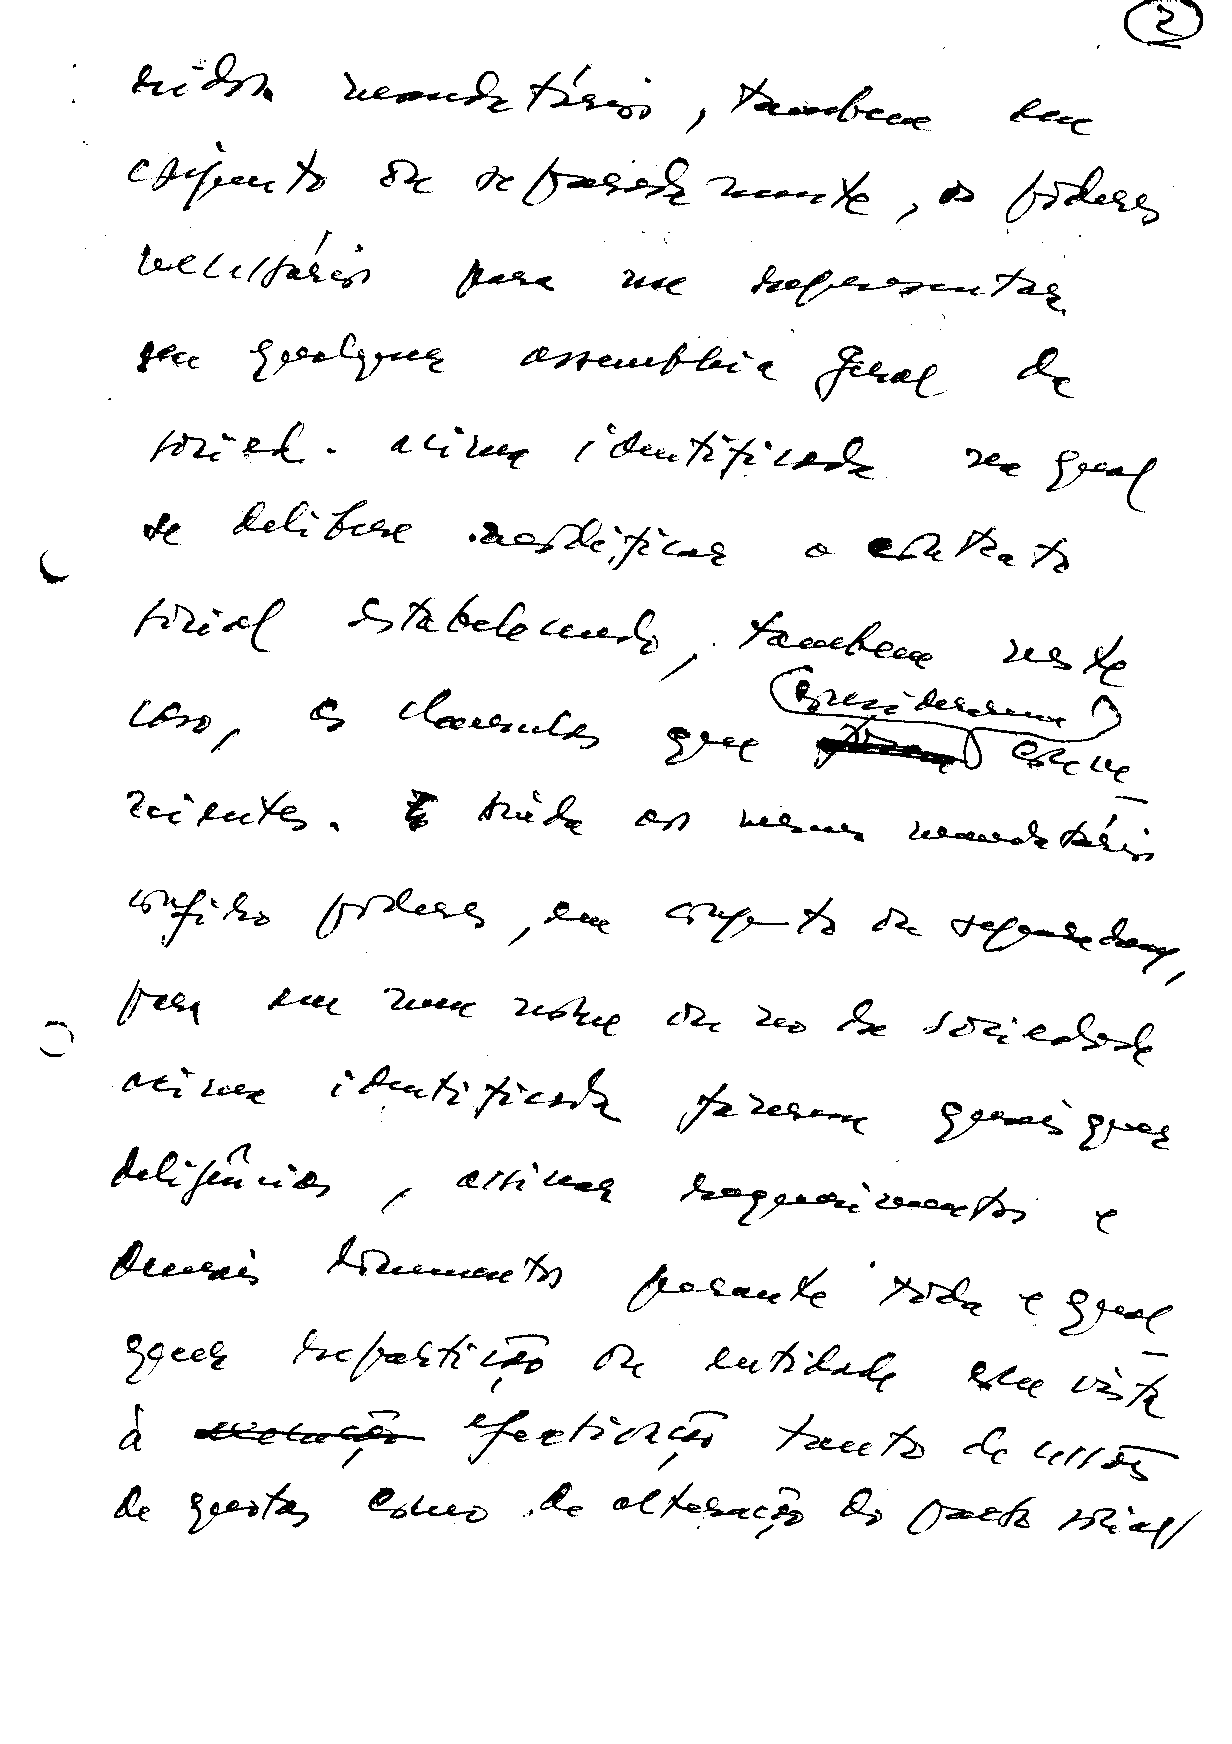 2
mandatários, também em
conjunto ou separadamente, os poderes
necessários para me representar
em qualquer assembleia geral da
socied. acima identificada na qual
se delibere modificar o contrato
social estabelecendo, também neste
considerarem
caso, as clausulas que conve
nientes. Ainda aos mesmos mandatários
confiro poderes, em conjunto ou separadamente,
para em meu nome ou no da sociedade
acima identificada fazerem quaisquer
deligências, assinar requerimentos e
demais documentos perante toda e qual
quer repartição ou entidade com vista
à efectivação tanto da cessão
de quotas como da alteração do pacto social